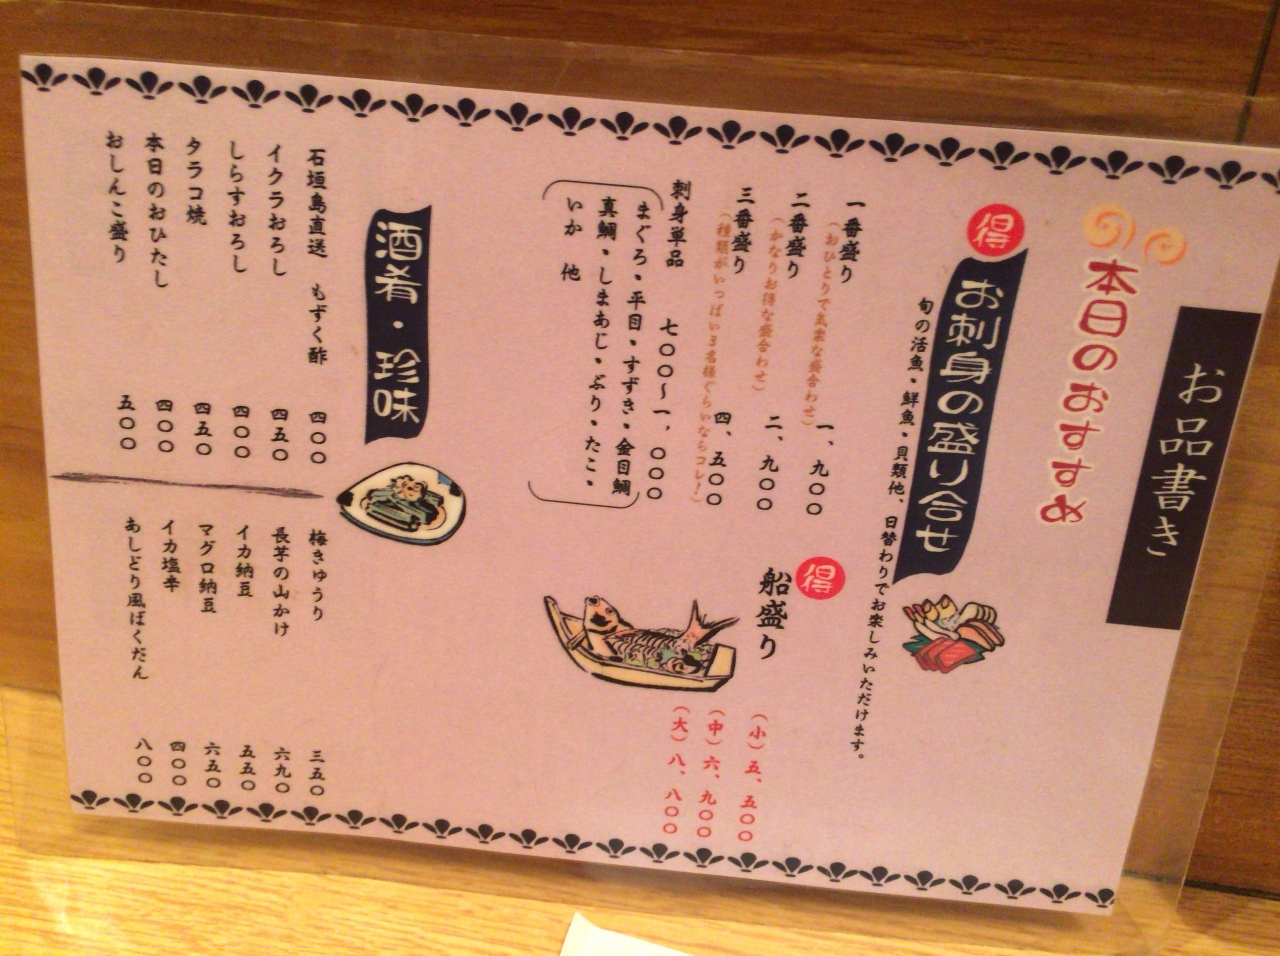 お品書き
本日のおすすめ
得
お刺身の盛り合せ
旬の活魚・鮮魚・貝類他、日替わりでお楽しみいただけます。
一番盛り 一、九〇〇
（おひとりで気楽な盛合わせ）
二番盛り 二、九〇〇
（かなりお得な盛合わせ）
三番盛り 四、五〇〇
（種類がいっぱい３名様ぐらいならコレ！）
刺身単品 七〇〇〜一、〇〇〇
まぐろ・平目・すずき・金目鯛
真鯛・しまあじ・ぶり・たこ・
いか 他
得
船盛り
（小）五、五〇〇
（中）六、九〇〇
（大）八、八〇〇
酒肴・珍味
石垣島直送 もずく酢 四〇〇
イクラおろし 四五〇
しらすおろし 四〇〇
タラコ焼 四五〇
本日のおひたし 四〇〇
おしんこ盛り 五〇〇
梅きゅうり 三五〇
長芋の山かけ 六九〇
イカ納豆 五五〇
マグロ納豆 六五〇
イカ塩辛 四〇〇
あしどり風ばくだん 八〇〇